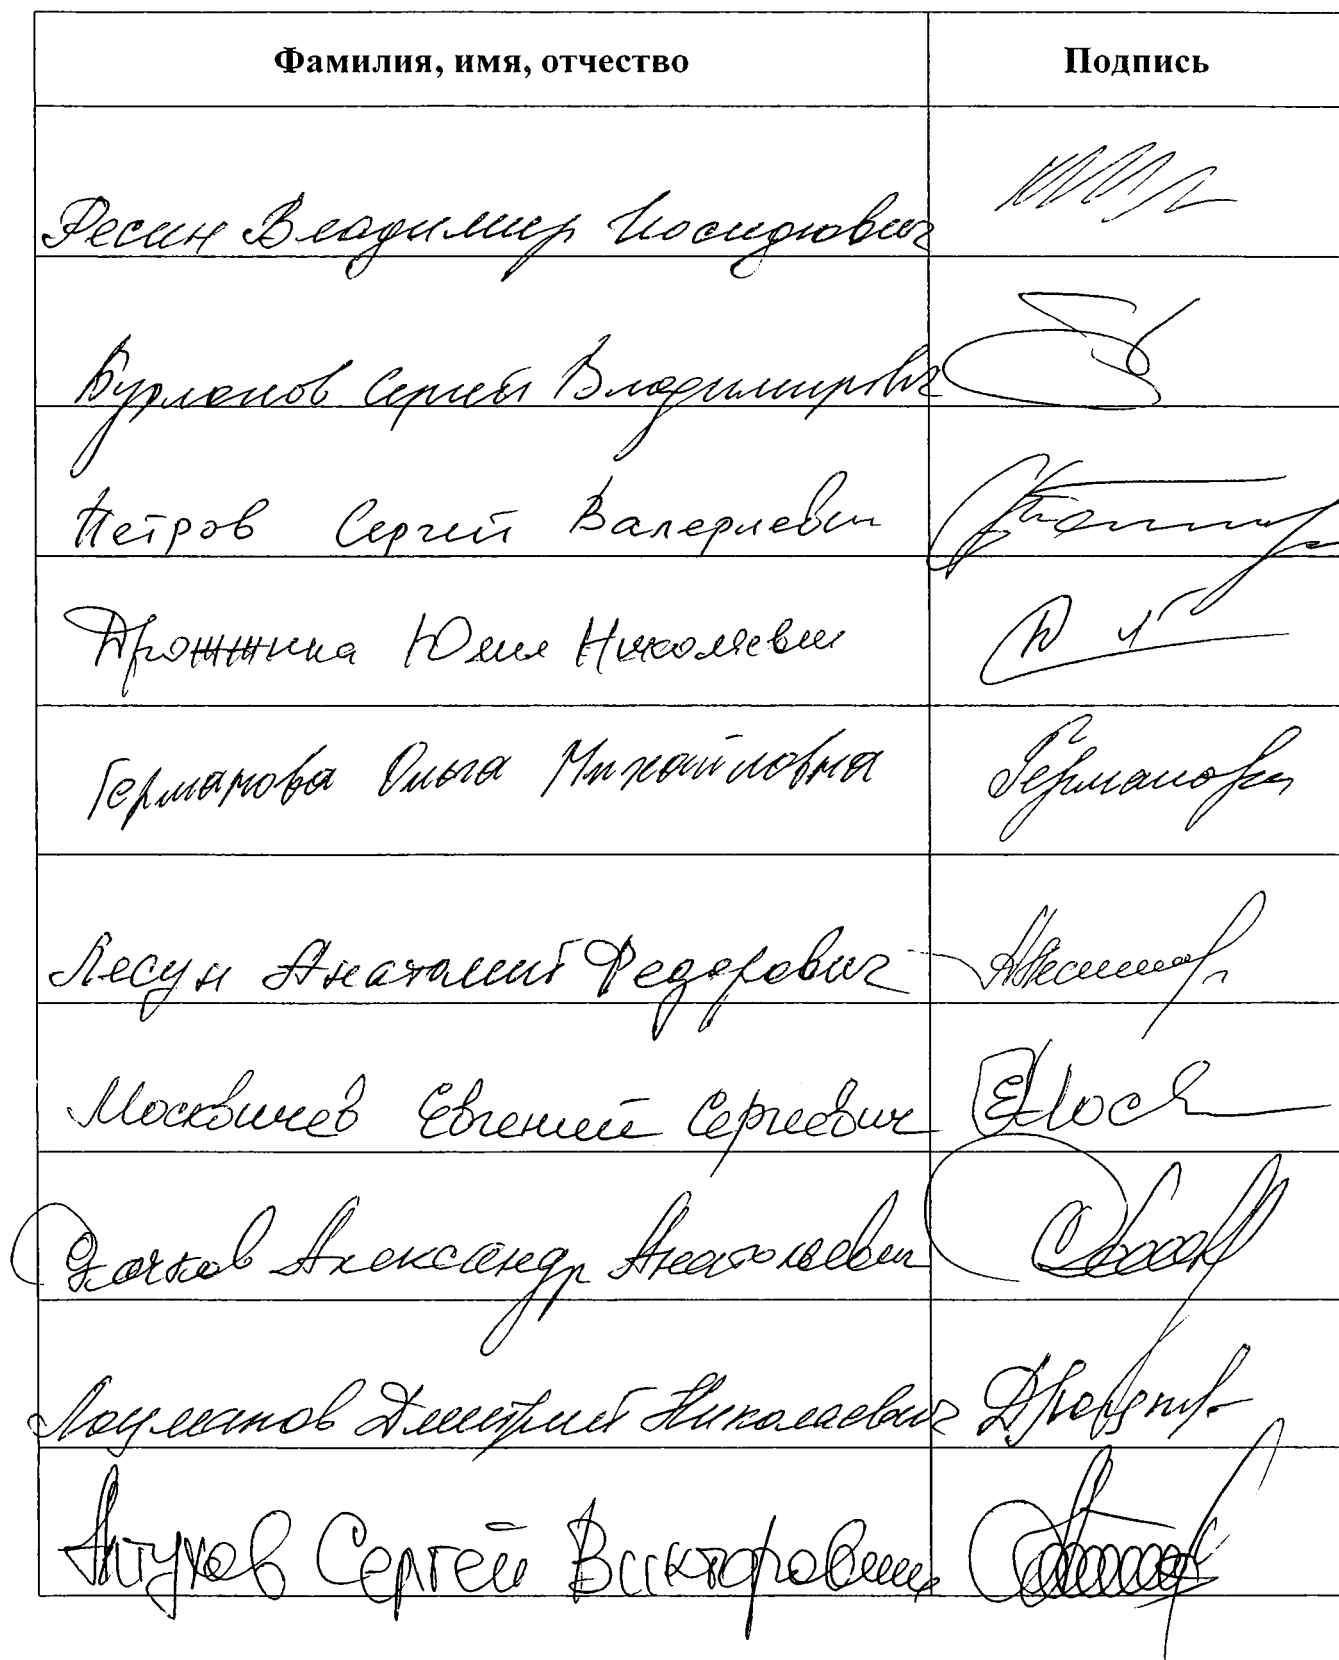 Фамилия, имя, отчество Подпись
Ресин Владимир Иосифович
Бурлаков Сергей Владимирович
Петров Сергей Валериевич
Дрожжина Юлия Николаевна
Германова Ольга Михайловна Германова
Лесун Анатолий Федорович
Москвичев Евгений Сергеевич ЕМоск
Александр Анатольевич
Лоцманов Дмитрий Николаевич
Алтухов Сергей Викторович